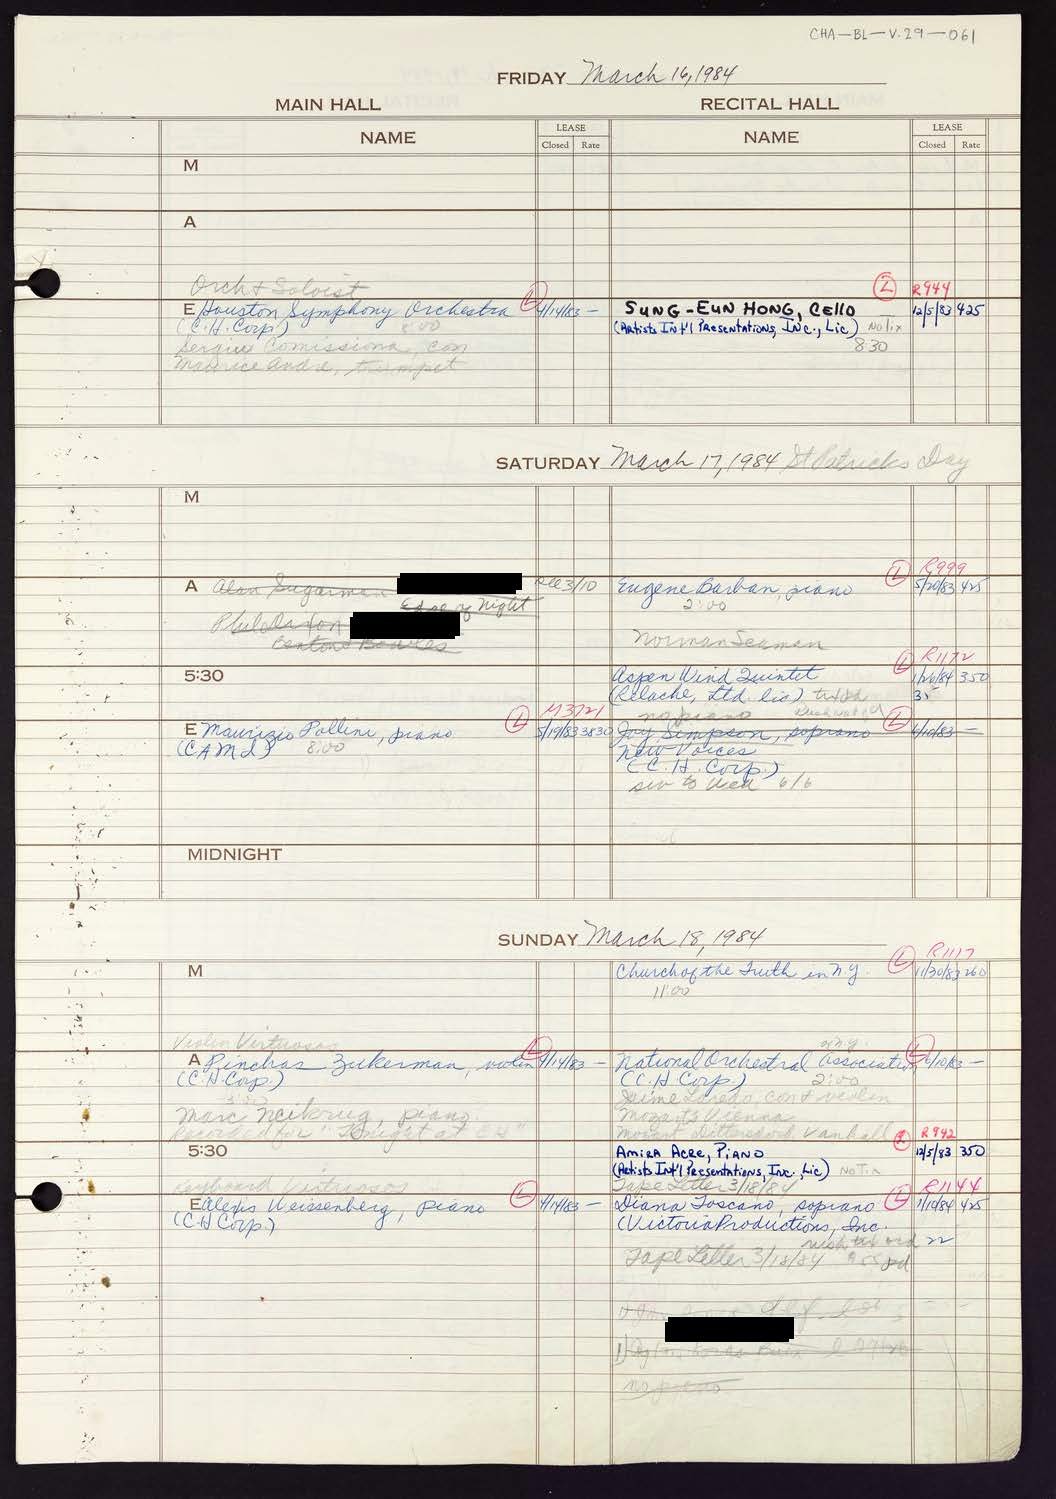 CHA-BL-V.29-061
FRIDAY March 16, 1984
MAIN HALL
RECITAL HALL
NAME
LEASE
Closed Rate
NAME
LEASE
Closed Rate
M
A
Orch & Soloist
E Houston Symphony Orchestra L 4/14/83 -
(C.H. Corp.) 8:00
Sergiu Comissiona, con
Maurice Andre, trumpet
L R944
SUNG-EUN HONG, CELLO 12/5/83 425
(Artists Int'l Presentations, Inc., Lic) No Tix
8:30
SATURDAY March 17, 1984 St Patricks Day
M
A Alan Sugarman rel 3/10
Edge of Night
Benton & Bowles
L R999
Eugene Barban, piano 5/20/83 425
2:00
Norman Seaman
5:30
L R1172
Aspen Wind Quintet 1/26/84 350
(Relache, Ltd. lic) 35
no piano
M3721
E Maurizio Pollini, piano L 5/19/83 3830
(CAMI) 8:00
Joy Simpson, soprano L 6/10/83 -
New Voices
(C.H. Corp.)
to Wed 6/6
MIDNIGHT
SUNDAY March 18, 1984
M
L R1117
Church of the Truth in N.Y. 11/30/83 260
11:00
Violin Virtuosos
A Pinchas Zukerman, violin L 4/14/83 -
(C.H. Corp.)
3:00
Marc Neikrug, piano
Recorded for "Tonight at CH"
of N.Y.
National Orchestral Association L 6/10/83 -
(C.H. Corp.) 2:00
Jaime Laredo, con & violin
Mozart's Vienna
Mozart Dittersdorf, Vanhall
5:30
L R942
AMIRA ACRE, PIANO 12/5/83 350
(Artists Int'l Presentations, Inc., Lic) No Tix
Tape Letter 3/18/84
Keyboard Virtuosos
E Alexis Weissenberg, piano L 4/14/83 -
(C.H. Corp.)
L R1144
Diana Toscano, soprano 1/10/84 425
(Victoria Productions, Inc.
22
Tape Letter 3/18/84
no piano